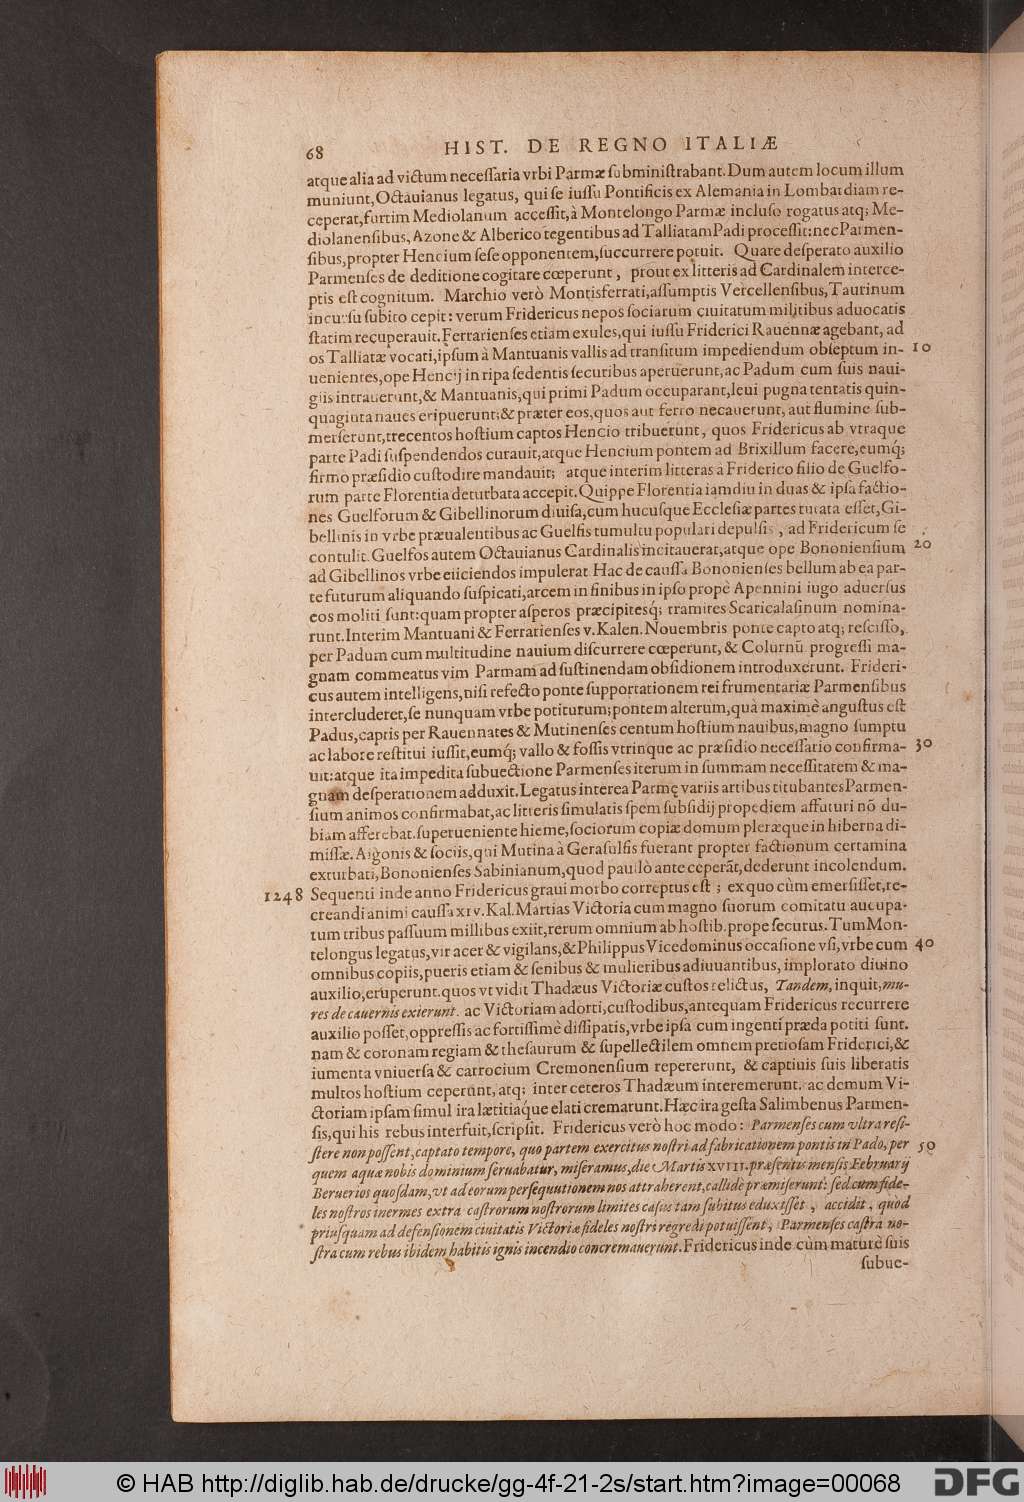 68 HIST. DE REGNO ITALIÆ
atque alia ad victum necessaria vrbi Parmæ subministrabant. Dum autem locum illum
muniunt, Octauianus legatus, qui se iussu Pontificis ex Alemania in Lombardiam re-
ceperat, furtim Mediolanum accessit, à Montelongo Parmæ incluso rogatus atq; Me-
diolanensibus, Azone & Alberico regentibus ad Talliatam Padi processit: nec Parmen-
sibus, propter Hencium sese opponentem, succurrere potuit. Quare desperato auxilio
Parmenses de deditione cogitare cœperunt, prout ex litteris ad Cardinalem interce-
ptis est cognitum. Marchio verò Montisferrati, assumptis Vercellensibus, Taurinum
incursu subito cepit: verum Fridericus nepos sociarum ciuitatum militibus aduocatis
statim recuperauit. Ferrarienses etiam exules, qui iussu Friderici Rauennæ agebant, ad
os Talliatæ vocati, ipsum à Mantuanis vallis ad transitum impediendum obseptum in- 10
uenientes, ope Hencij in ripa sedentis securibus aperuerunt, ac Padum cum suis naui-
giis intrauerunt, & Mantuanis, qui primi Padum occuparant, leui pugna tentatis quin-
quaginta naues eripuerunt; & præter eos, quos aut ferro necauerunt, aut flumine sub-
merserunt, trecentos hostium captos Hencio tribuerunt, quos Fridericus ab vtraque
parte Padi suspendendos curauit, atque Hencium pontem ad Brixillum facere, eumq́;
firmo præsidio custodire mandauit; atque interim litteras à Friderico filio de Guelfo-
rum parte Florentia deturbata accepit. Quippe Florentia iamdiu in duas & ipsa factio-
nes Guelforum & Gibellinorum diuisa, cum hucusque Ecclesiæ partes tutata esset, Gi-
bellinis in vrbe præualentibus ac Guelfis tumultu populari depulsis, ad Fridericum se
contulit. Guelfos autem Octauianus Cardinalis incitauerat, atque ope Bononiensium 20
ad Gibellinos vrbe eiiciendos impulerat. Hac de caussa Bononienses bellum ab ea par-
te futurum aliquando suspicati, arcem in finibus in ipso propè Apennini iugo aduersus
eos moliti sunt: quam propter asperos præcipitesq́; tramites Scaricalasinum nomina-
runt. Interim Mantuani & Ferrarienses v. Kalen. Nouembris ponte capto atq; rescisso,
per Padum cum multitudine nauium discurrere cœperunt, & Colurnū progressi ma-
gnam commeatus vim Parmam ad sustinendam obsidionem introduxerunt. Frideri-
cus autem intelligens, nisi refecto ponte supportationem rei frumentariæ Parmensibus
intercluderet, se nunquam vrbe potiturum; pontem alterum, quà maximè angustus est
Padus, captis per Rauennates & Mutinenses centum hostium nauibus, magno sumptu
ac labore restitui iussit, eumq́; vallo & fossis vtrinque ac præsidio necessario confirma- 30
uit: atque ita impedita subuectione Parmenses iterum in summam necessitatem & ma-
gnam desperationem adduxit. Legatus interea Parmę variis artibus titubantes Parmen-
sium animos confirmabat, ac litteris simulatis spem subsidij propediem affuturi nō du-
biam afferebat. superueniente hieme, sociorum copiæ domum pleræque in hiberna di-
missæ. Aigonis & sociis, qui Mutina à Gerasulfis fuerant propter factionum certamina
exturbati, Bononienses Sabinianum, quod paulò ante ceperāt, dederunt incolendum.
1248 Sequenti inde anno Fridericus graui morbo correptus est; ex quo cùm emersisset, re-
creandi animi caussa XIV. Kal. Martias Victoria cum magno suorum comitatu aucupa-
tum tribus passuum millibus exiit, rerum omnium ab hostib. prope securus. Tum Mon-
telongus legatus, vir acer & vigilans, & Philippus Vicedominus occasione vsi, vrbe cum 40
omnibus copiis, pueris etiam & senibus & mulieribus adiuuantibus, implorato diuino
auxilio, eruperunt. quos vt vidit Thadæus Victoriæ custos relictus, Tandem, inquit, mu-
res de cauernis exierunt. ac Victoriam adorti, custodibus, antequam Fridericus recurrere
auxilio posset, oppressis ac fortissimè dissipatis, vrbe ipsa cum ingenti præda potiti sunt.
nam & coronam regiam & thesaurum & supellectilem omnem pretiosam Friderici, &
iumenta vniuersa & carrocium Cremonensium repererunt, & captiuis suis liberatis
multos hostium ceperunt, atq; inter ceteros Thadæum interemerunt. ac demum Vi-
ctoriam ipsam simul ira lætitiáque elati cremarunt. Hæc ira gesta Salimbenus Parmen-
sis, qui his rebus interfuit, scripsit. Fridericus verò hoc modo: Parmenses cum vltra resi-
stere non possent, captato tempore, quo partem exercitus nostri ad fabricationem pontis in Pado, per 50
quem aquæ nobis dominium seruabatur, miseramus, die Martis XVIII. præsentis mensis Februarij
Beruerios quosdam, vt ad eorum persequutionem nos attraherent, callidè præmiserunt: sed cum fide-
les nostros inermes extra castrorum nostrorum limites casus tam subitus eduxisset, accidit, quod
priusquam ad defensionem ciuitatis Victoriæ fideles nostri regredi potuissent, Parmenses castra no-
stra cum rebus ibidem habitis ignis incendio concremauerunt. Fridericus inde cùm maturè suis
subue-
© HAB http://diglib.hab.de/drucke/gg-4f-21-2s/start.htm?image=00068
DFG